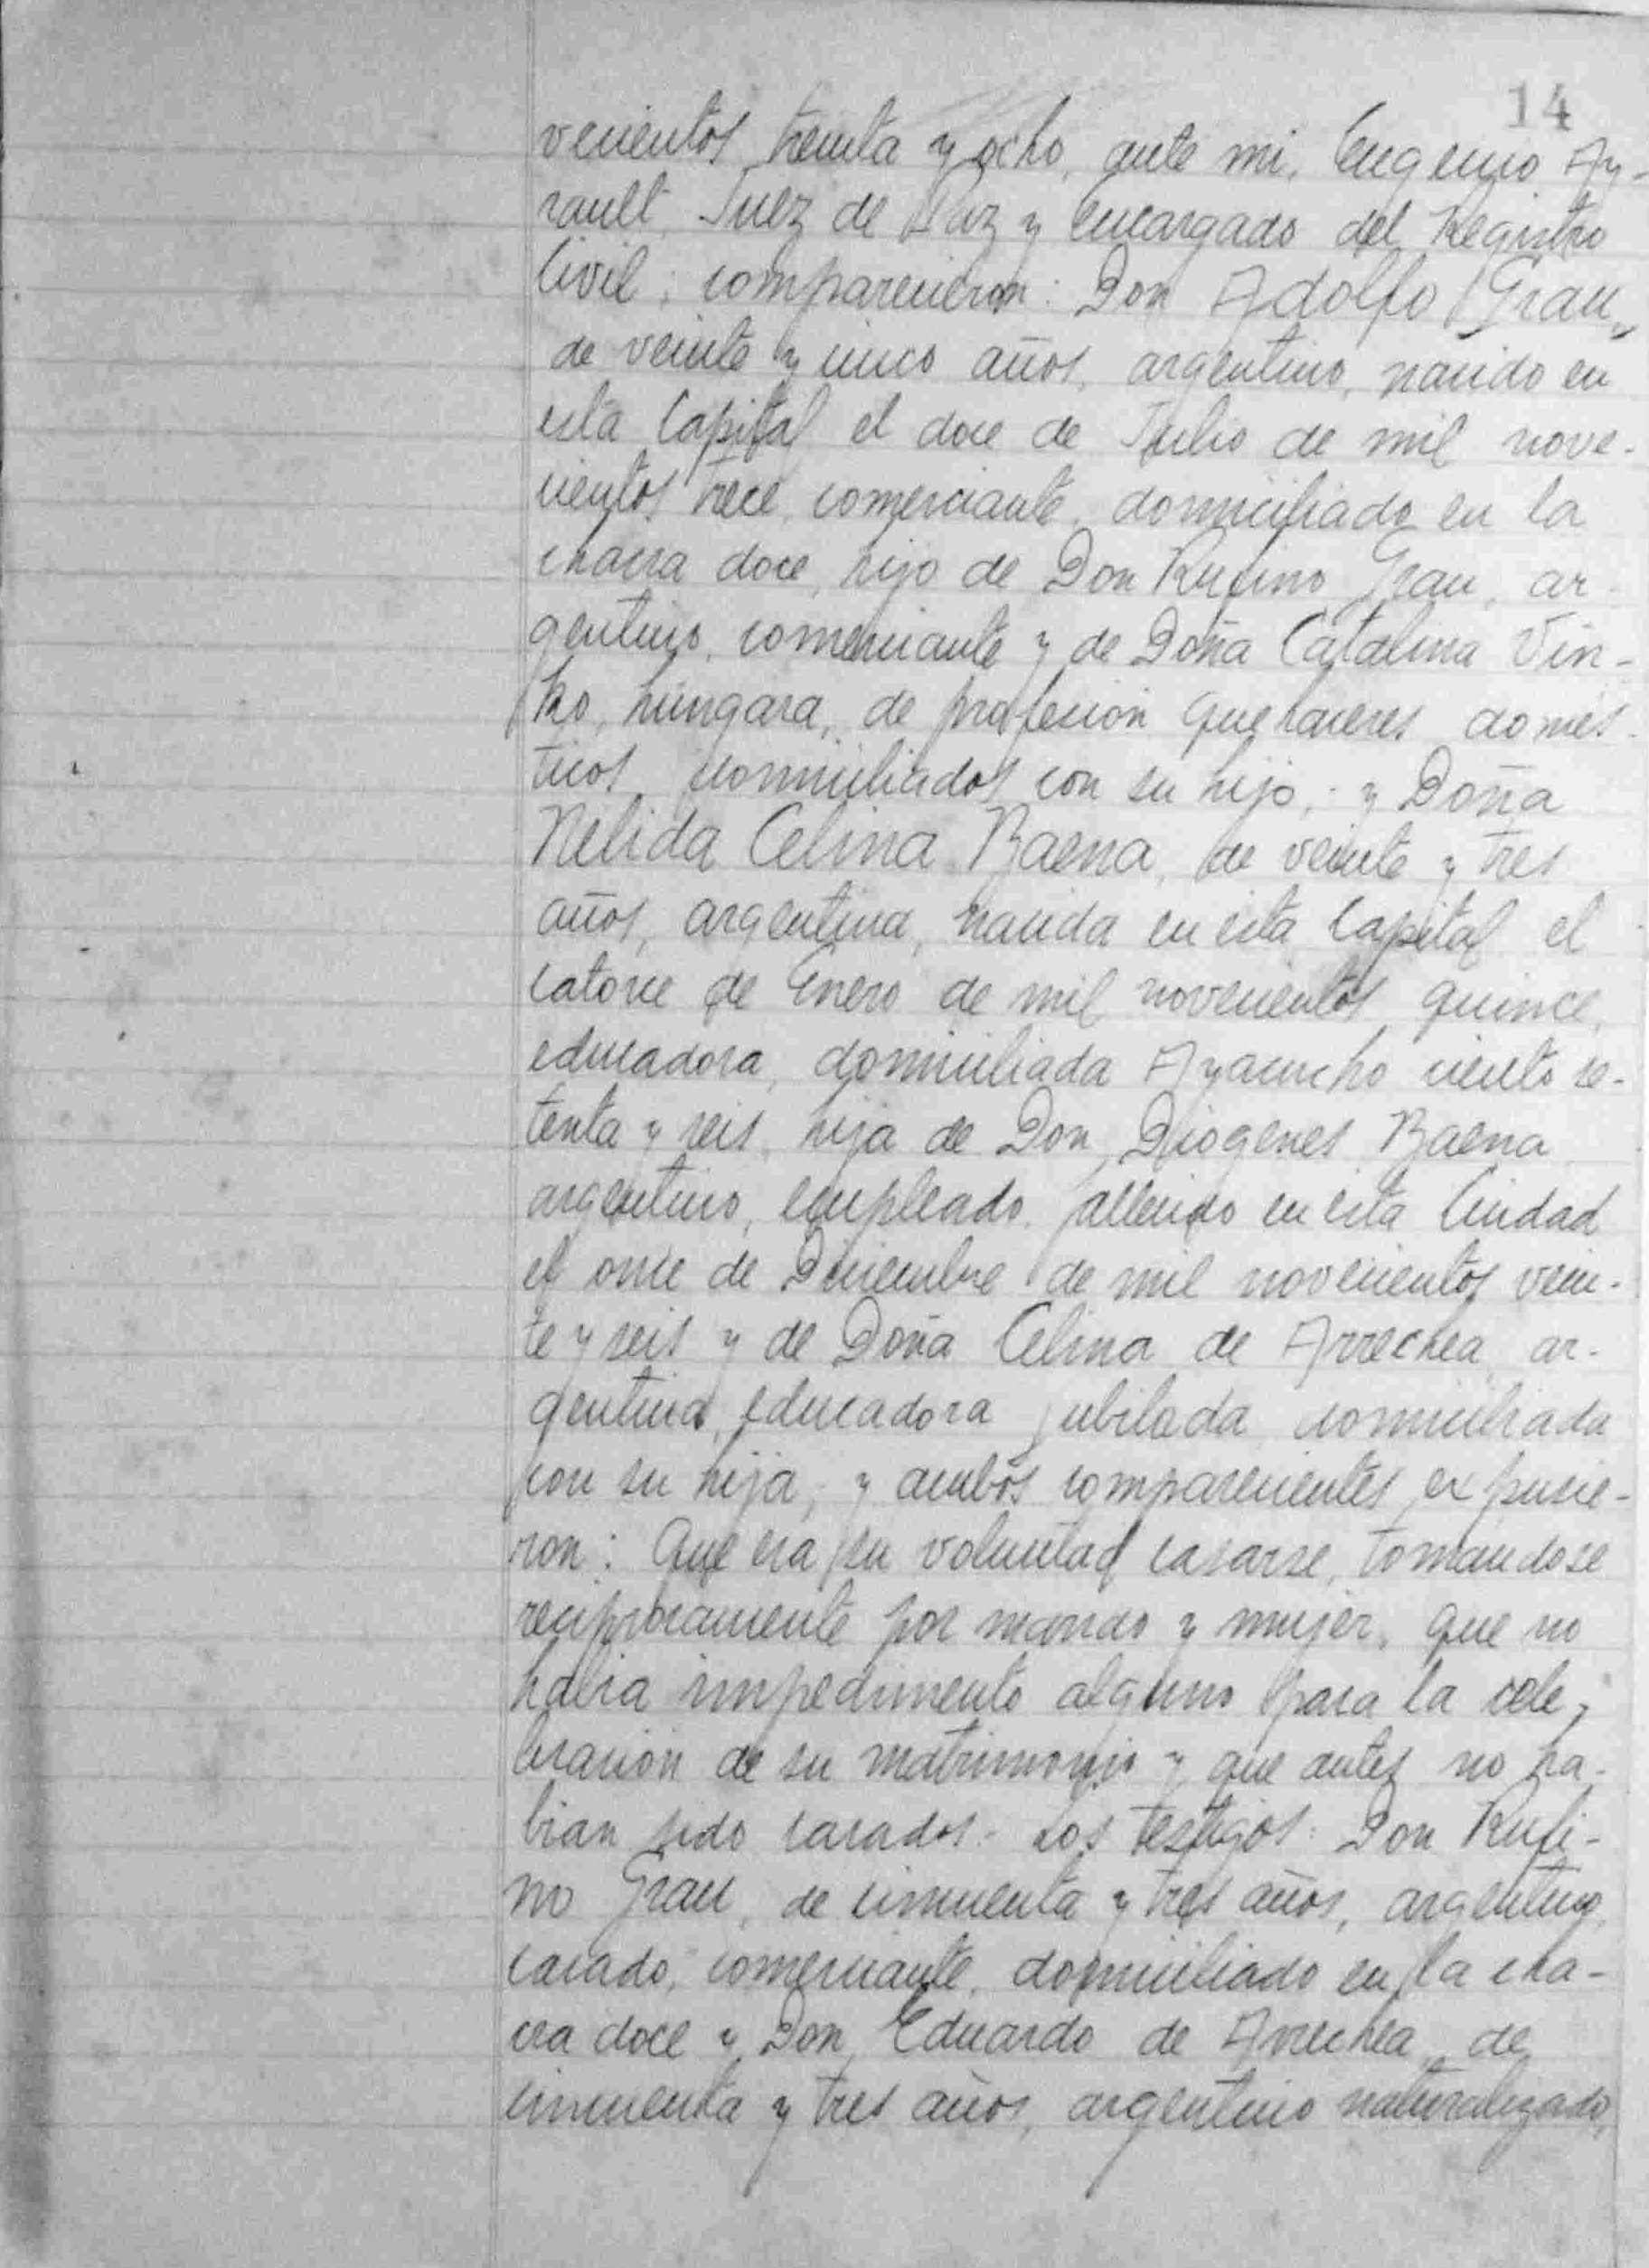 14
vecientos treinta y ocho, ante mi, Eugenio Ay-
rault, Juez de Paz y Encargado del Registro
Civil, comparecieron: Don Adolfo Grau,
de veinte y cinco años, argentino, nacido en
esta Capital el doce de Julio de mil nove-
cientos trece, comerciante, domiciliado en la
chacra doce, hijo de Don Rufino Grau, ar-
gentino, comerciante y de Doña Catalina Vin-
ko, húngara, de profesión quehaceres domés-
ticos, domiciliados con su hijo; y Doña
Nelida Celina Baena, de veinte y tres
años, argentina, nacida en esta Capital el
catorce de Enero de mil novecientos quince,
educadora, domiciliada Ayacucho ciento se-
tenta y seis, hija de Don Diogenes Baena
argentino, empleado, fallecido en esta Ciudad
el once de Diciembre de mil novecientos vein-
te y seis y de Doña Celina de Arrechea, ar-
gentina, educadora jubilada, domiciliada
con su hija; y ambos comparecientes expusie-
ron: Que era su voluntad casarse, tomandose
reciprocamente por marido y mujer, que no
habia impedimento alguno para la cele-
bración de su matrimonio y que antes no ha-
bian sido casados. Los testigos: Don Rufi-
no Grau, de cincuenta y tres años, argentino,
casado, comerciante, domiciliado en la cha-
cra doce y Don Eduardo de Arrechea, de
cincuenta y tres años, argentino naturalizado,